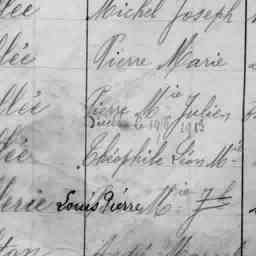 llée Michel Joseph
llée Pierre Marie
llée Pierre M.ie Julien
Décédé le 1912
llée Théophile Léon M.ie
lerie Louis Pierre M.ie Jh
ltan André